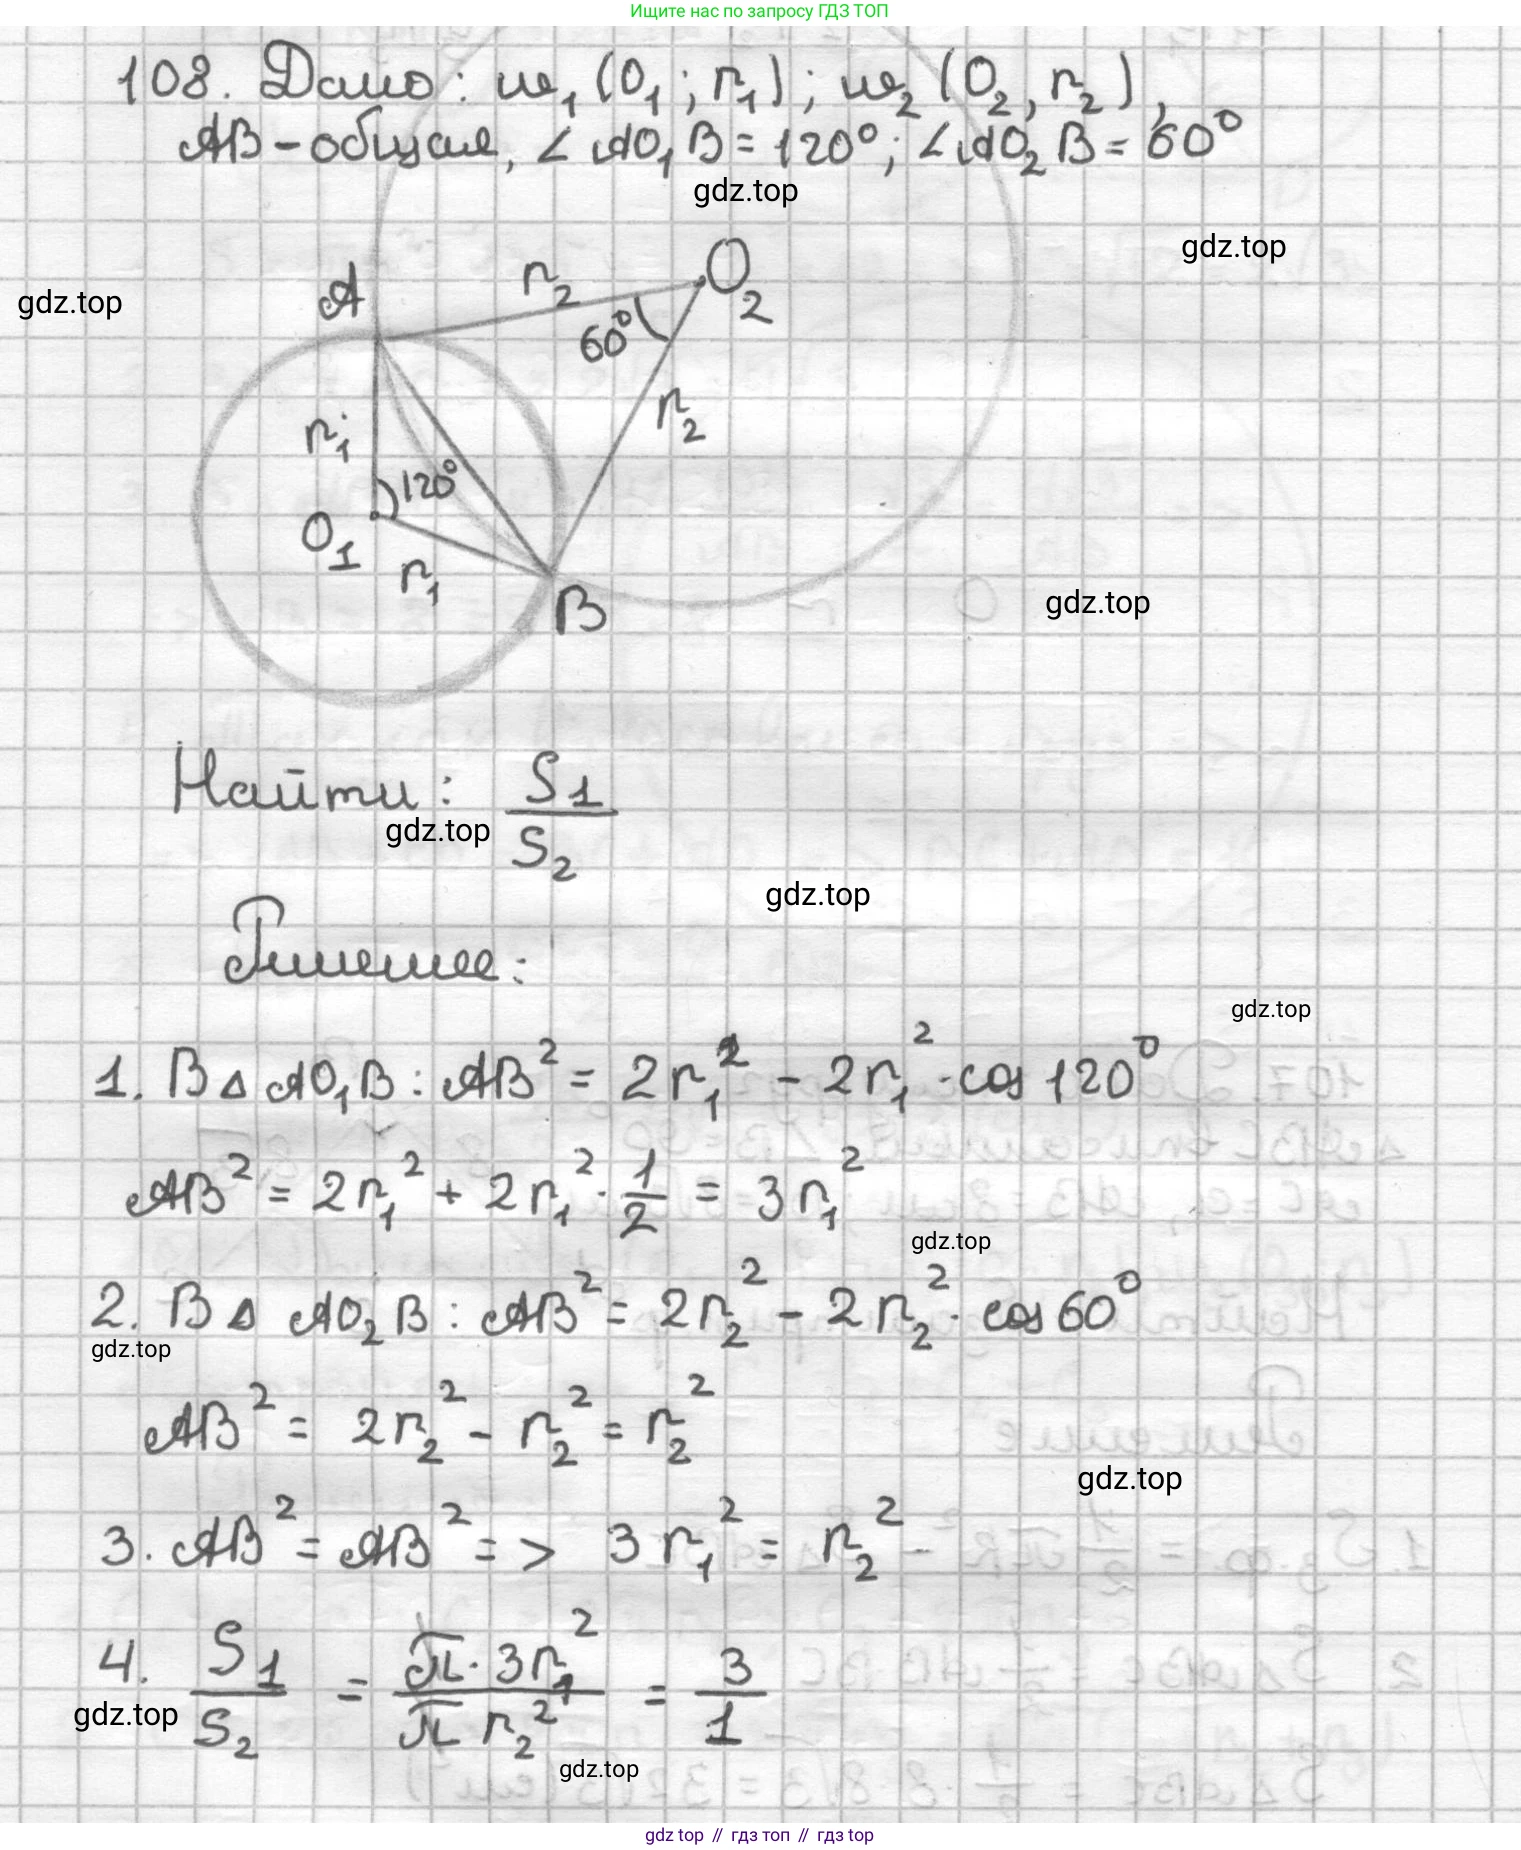 Ищите нас по запросу ГДЗ ТОП
108. Дано: w₁ (O₁; r₁); w₂ (O₂, r₂),
AB – общая, ∠AO₁B = 120°; ∠AO₂B = 60°
gdz.top
gdz.top
gdz.top
A
r₂
O₂
60°
r₂
r₁
120°
O₁
r₁
B
gdz.top
Найти: S₁/S₂
gdz.top
gdz.top
Решение:
gdz.top
1. В Δ AO₁B: AB² = 2r₁² - 2r₁² · cos 120°
AB² = 2r₁² + 2r₁² · 1/2 = 3r₁²
gdz.top
2. В Δ AO₂B: AB² = 2r₂² - 2r₂² · cos 60°
gdz.top
AB² = 2r₂² - r₂² = r₂²
gdz.top
3. AB² = AB² => 3r₁² = r₂²
4. S₁/S₂ = π · 3r₁²/π r₂² = 3/1
gdz.top
gdz.top
gdz top // гдз топ // гдз top